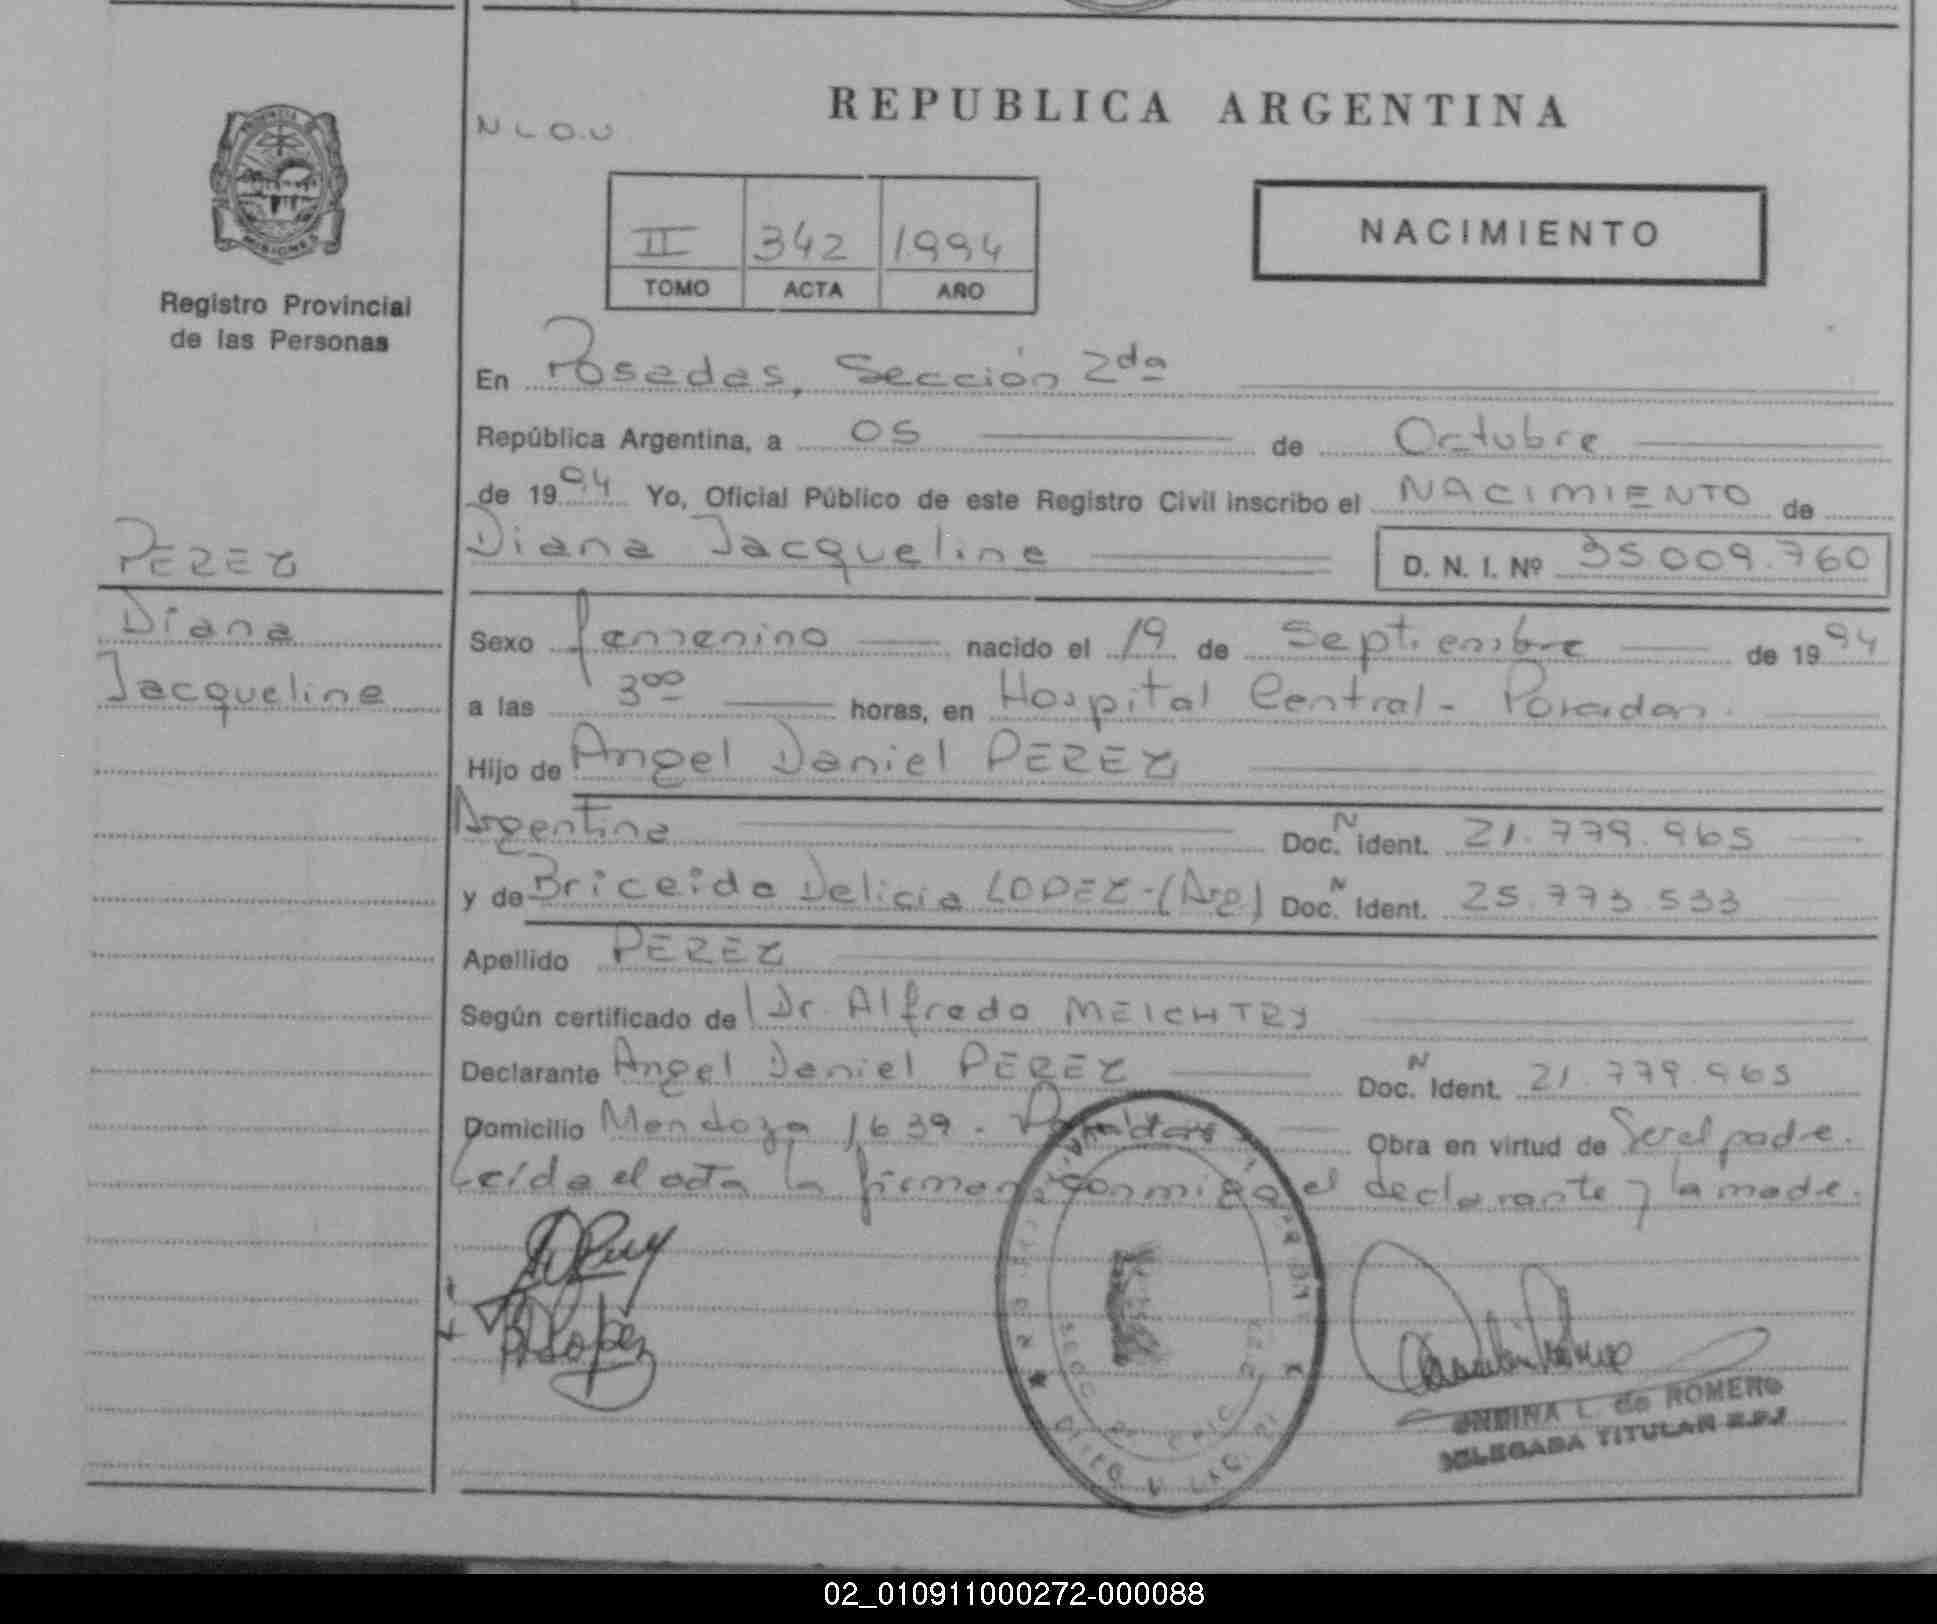 MISIONES
Registro Provincial
de las Personas
PEREZ
Diana
Jacqueline
N L O.U
REPUBLICA ARGENTINA
II 342 1994
TOMO ACTA AÑO
NACIMIENTO
En Posadas, Sección 2da
República Argentina, a 05 de Octubre
de 1994 Yo, Oficial Público de este Registro Civil inscribo el NACIMIENTO de
Diana Jacqueline D. N. I. Nº 35009.760
Sexo femenino nacido el 19 de Septiembre de 1994
a las 300 horas, en Hospital Central - Posadas.
Hijo de Angel Daniel PEREZ
Argentina Doc. N Ident. 21.779.965
y de Briceida Delicia LOPEZ-(Arg) Doc. N Ident. 25.773.533
Apellido PEREZ
Según certificado de Dr. Alfredo MEICHTRY
Declarante Angel Daniel PEREZ Doc. N Ident. 21.779.965
Domicilio Mendoza 1639 - Posadas Obra en virtud de Ser el padre.
Leída el acta la firman conmigo el declarante y la madre.
L. de ROMERO
DELEGADA TITULAR
02_010911000272-000088